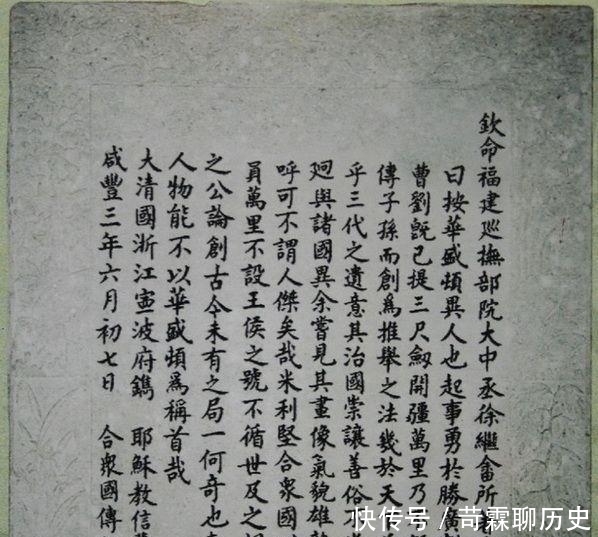 欽命福建廵撫部院大中丞徐繼畬所
曰按華盛頓異人也起事勇於勝廣
曹劉旣已提三尺劒開疆萬里乃
傳子孫而創爲推舉之法幾於天
乎三代之遺意其治國崇讓善俗不
廻與諸國異余嘗見其畫像氣貌雄
呼可不謂人傑矣哉米利堅合衆國
員萬里不設王侯之號不循世及之
之公論創古今未有之局一何奇也
人物能不以華盛頓爲稱首哉
大清國浙江寧波府鐫 耶穌教信
咸豐三年六月初七日 合衆國傳
快传号／苛霖聊历史